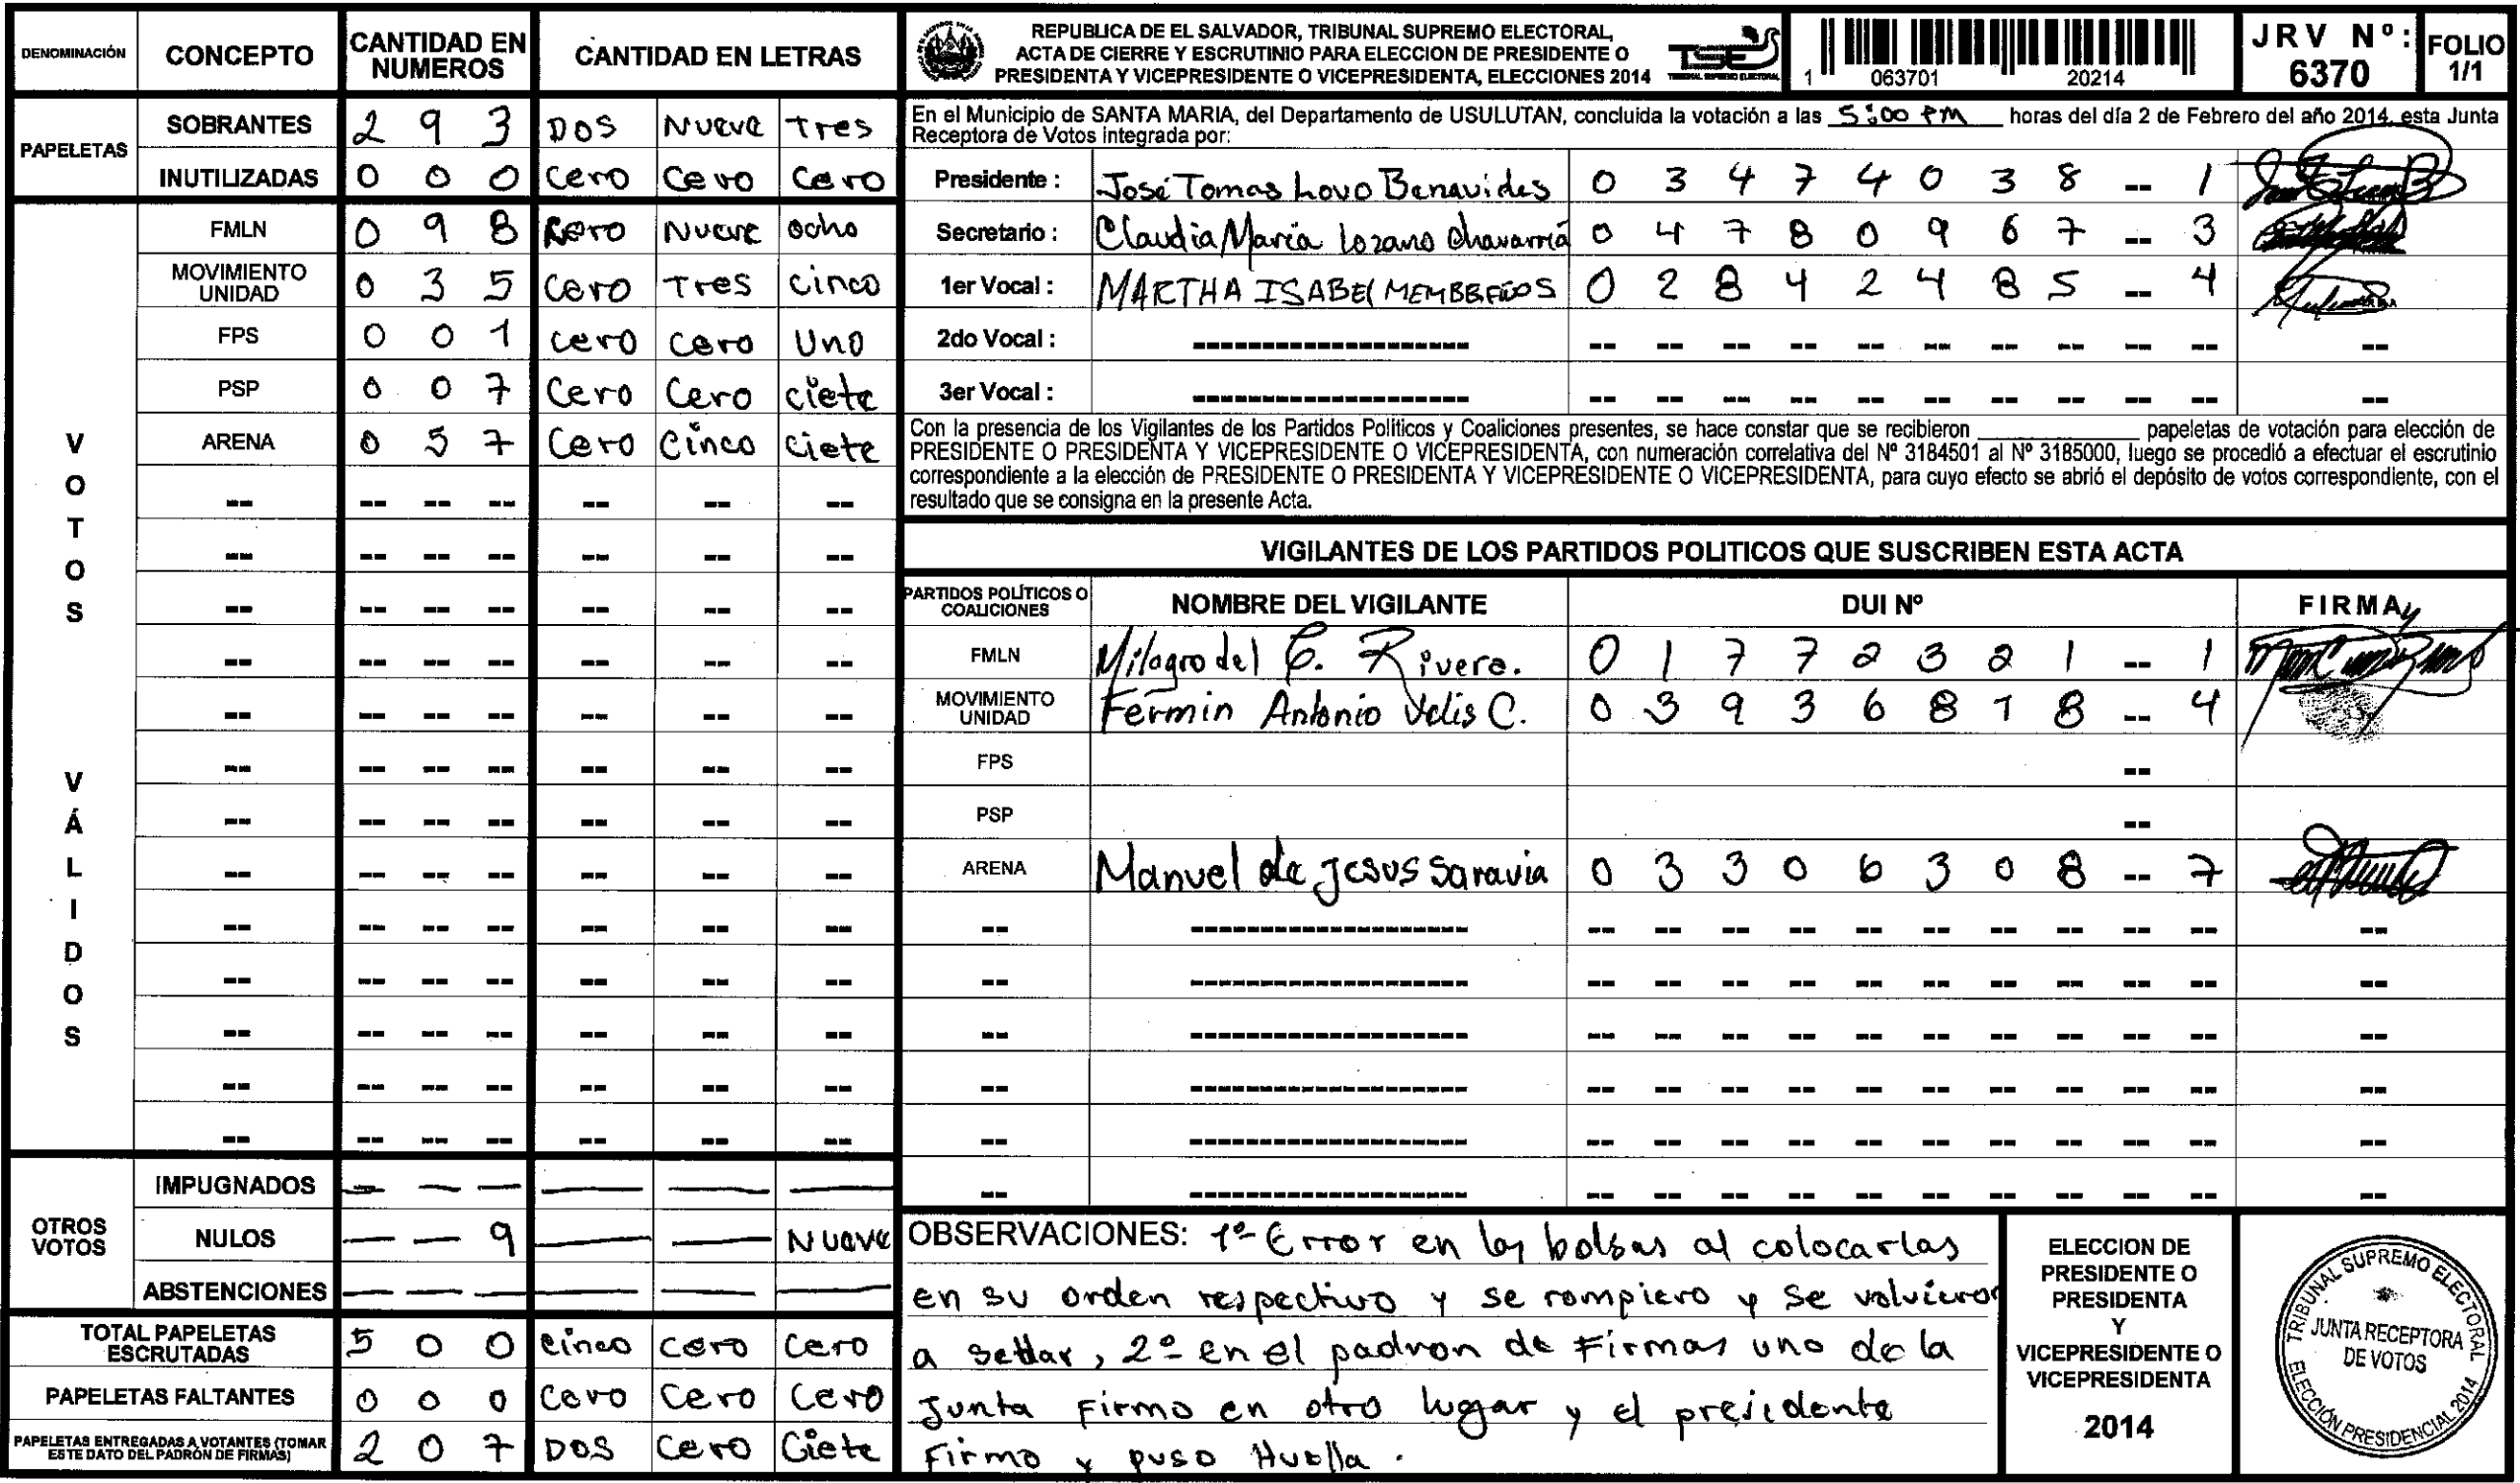 DENOMINACIÓN CONCEPTO CANTIDAD EN NUMEROS CANTIDAD EN LETRAS
PAPELETAS
SOBRANTES 2 9 3 DOS Nueve Tres
INUTILIZADAS 0 0 0 Cero Cero Cero
VOTOS VÁLIDOS
FMLN 0 9 8 Cero Nueve ocho
MOVIMIENTO UNIDAD 0 3 5 Cero Tres cinco
FPS 0 0 1 cero cero Uno
PSP 0 0 7 Cero Cero ciete
ARENA 0 5 7 Cero Cinco Ciete
OTROS VOTOS
IMPUGNADOS — — — — — —
NULOS — — 9 — — Nueve
ABSTENCIONES — — — — — —
TOTAL PAPELETAS ESCRUTADAS 5 0 0 cinco cero Cero
PAPELETAS FALTANTES 0 0 0 Cero Cero Cero
PAPELETAS ENTREGADAS A VOTANTES (TOMAR ESTE DATO DEL PADRÓN DE FIRMAS) 2 0 7 DOS Cero Ciete
REPUBLICA DE EL SALVADOR, TRIBUNAL SUPREMO ELECTORAL,
ACTA DE CIERRE Y ESCRUTINIO PARA ELECCION DE PRESIDENTE O
PRESIDENTA Y VICEPRESIDENTE O VICEPRESIDENTA, ELECCIONES 2014
TSE
TRIBUNAL SUPREMO ELECTORAL
1 063701 20214
JRV Nº: 6370
FOLIO 1/1
En el Municipio de SANTA MARIA, del Departamento de USULUTAN, concluida la votación a las 5:00 PM horas del día 2 de Febrero del año 2014, esta Junta
Receptora de Votos integrada por:
Presidente : José Tomas Lovo Benavides 0 3 4 7 4 0 3 8 -- 1
Secretario : Claudia María Lozano Chavarría 0 4 7 8 0 9 6 7 -- 3
1er Vocal : MARTHA ISABEL 0 2 8 4 2 4 8 5 -- 4
2do Vocal :
3er Vocal :
Con la presencia de los Vigilantes de los Partidos Políticos y Coaliciones presentes, se hace constar que se recibieron ________ papeletas de votación para elección de
PRESIDENTE O PRESIDENTA Y VICEPRESIDENTE O VICEPRESIDENTA, con numeración correlativa del Nº 3184501 al Nº 3185000, luego se procedió a efectuar el escrutinio
correspondiente a la elección de PRESIDENTE O PRESIDENTA Y VICEPRESIDENTE O VICEPRESIDENTA, para cuyo efecto se abrió el depósito de votos correspondiente, con el
resultado que se consigna en la presente Acta.
VIGILANTES DE LOS PARTIDOS POLITICOS QUE SUSCRIBEN ESTA ACTA
PARTIDOS POLÍTICOS O COALICIONES NOMBRE DEL VIGILANTE DUI Nº FIRMA
FMLN Milagro del C. Rivera. 0 1 7 7 2 3 2 1 -- 1
MOVIMIENTO UNIDAD Fermin Antonio Velis C. 0 3 9 3 6 8 1 8 -- 4
FPS --
PSP --
ARENA Manuel de Jesus Saravia 0 3 3 0 6 3 0 8 -- 7
OBSERVACIONES: 1º Error en las bolsas al colocarlas
en su orden respectivo y se rompiero y se volvieron
a sellar, 2º en el padron de Firmas uno de la
Junta Firmo en otro lugar y el presidente
Firmo y puso Huella.
ELECCION DE
PRESIDENTE O
PRESIDENTA
Y
VICEPRESIDENTE O
VICEPRESIDENTA
2014
TRIBUNAL SUPREMO ELECTORAL
JUNTA RECEPTORA
DE VOTOS
ELECCIÓN PRESIDENCIAL 2014